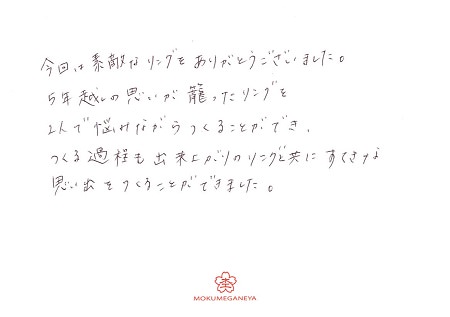 今回は素敵なリングをありがとうございました。
5年越しの思いが籠ったリングを
2人で悩みながらつくることができ、
つくる過程も出来上がりのリングと共にすてきな
思い出をつくることができました。
MOKUMEGANEYA